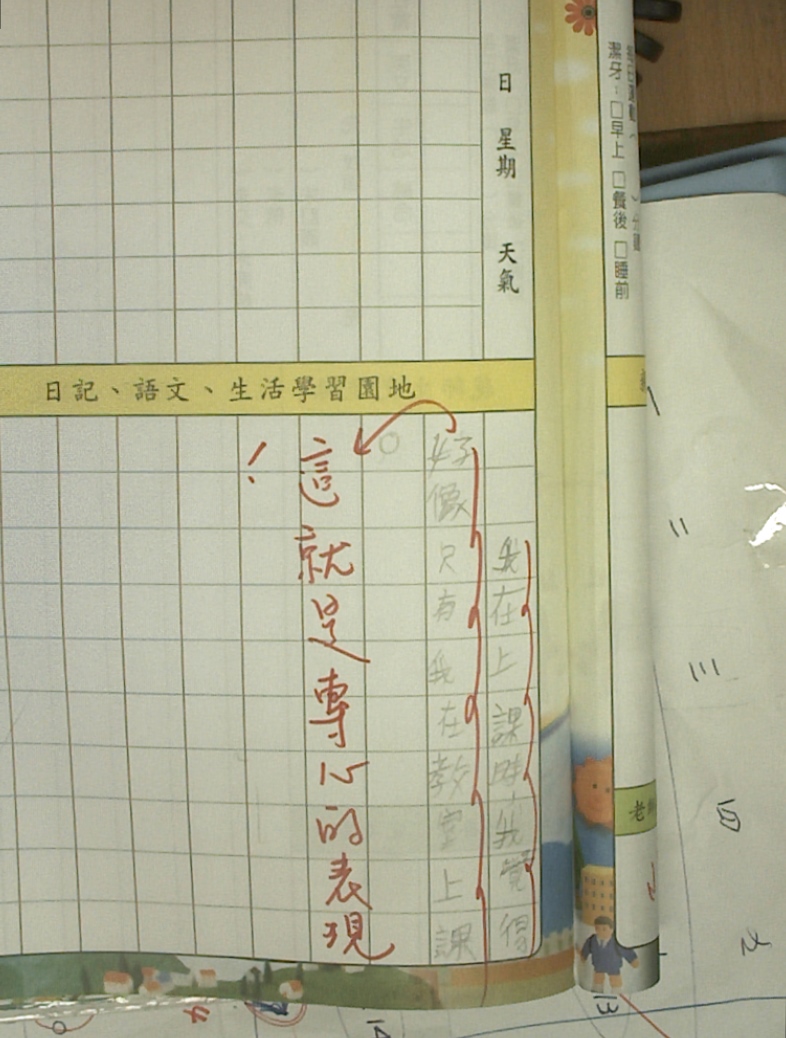 潔牙：□早上 □餐後 □睡前
日 星期 天氣
日記、語文、生活學習園地
我在上課時，我覺得
好像只有我在教室上課
。
這就是專心的表現
！
老師
13
14